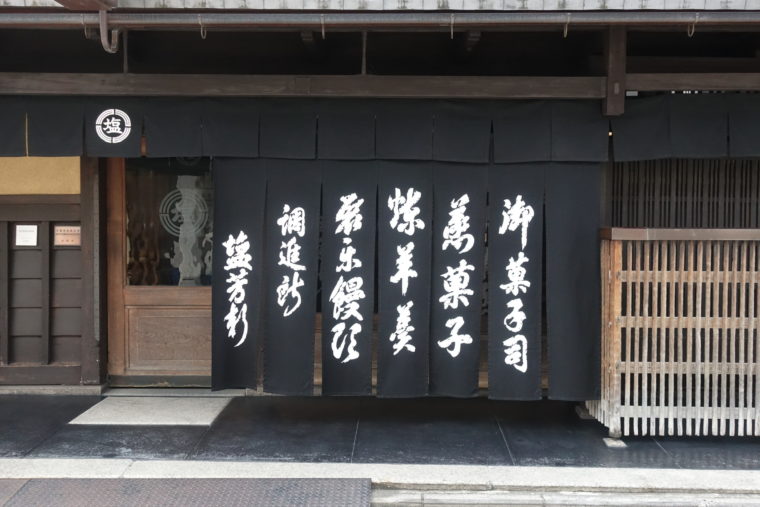 御菓子司
蒸菓子
煉羊羹
聚楽饅頭
調進所
塩芳軒
塩